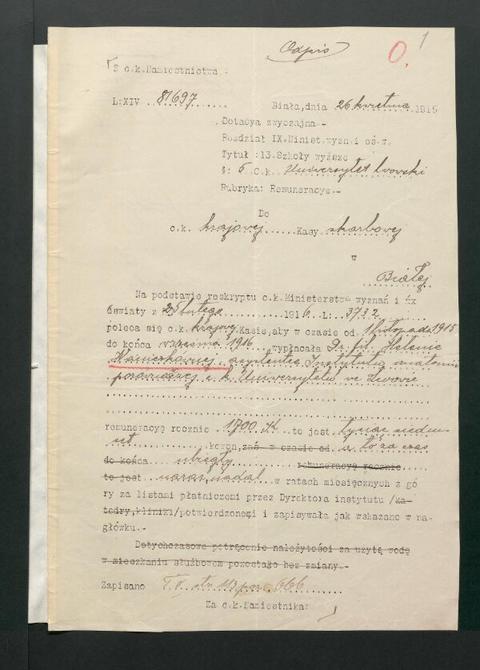 Odpis
1
O.
Z c.k.Namiestnictwa.
L:XIV 81697
Biała,dnia 26 kwietnia 1916
Dotacya zwyczajna-
Rozdział IX.Minist.wyzn.i ośw.
Tytuł :13.Szkoły wyższe
§: 6 C.k. Uniwersytet lwowski
Rubryka: Remuneracye.-
Do
c.k. krajowej Kasy skarbowej
w
Białej
Na podstawie reskryptu c.k.Ministerstwa wyznań i
światy z 25 lutego 1916 L: 3732
poleca się c.k. krajowej Kasie,aby w czasie od 1 listopada 1915
do końca września 1916 wypłacała Dr. fil. Helenie
asystentce Instytutu anatomii
porównawczej c.k. Uniwersytetu we Lwowie
remuneracyę rocznie 1700 K to jest tysiąc siedm
set koron,zaś w czasie od a to za czas
do końca ubiegły remuneracyę rocznie
to jest zaraz, nadal w ratach miesięcznych z gó
ry za listami płatniczemi przez Dyrektora instytutu /ka-
tedry,kliniki/potwierdzonemi i zapisywała jak wskazano w na-
główku.-
Dotychczasowe potrącenie należytości za użytą wodę
w mieszkaniu służbowem pozostało bez zmiany.-
Zapisano 666
Za c.k.Namiestnika: